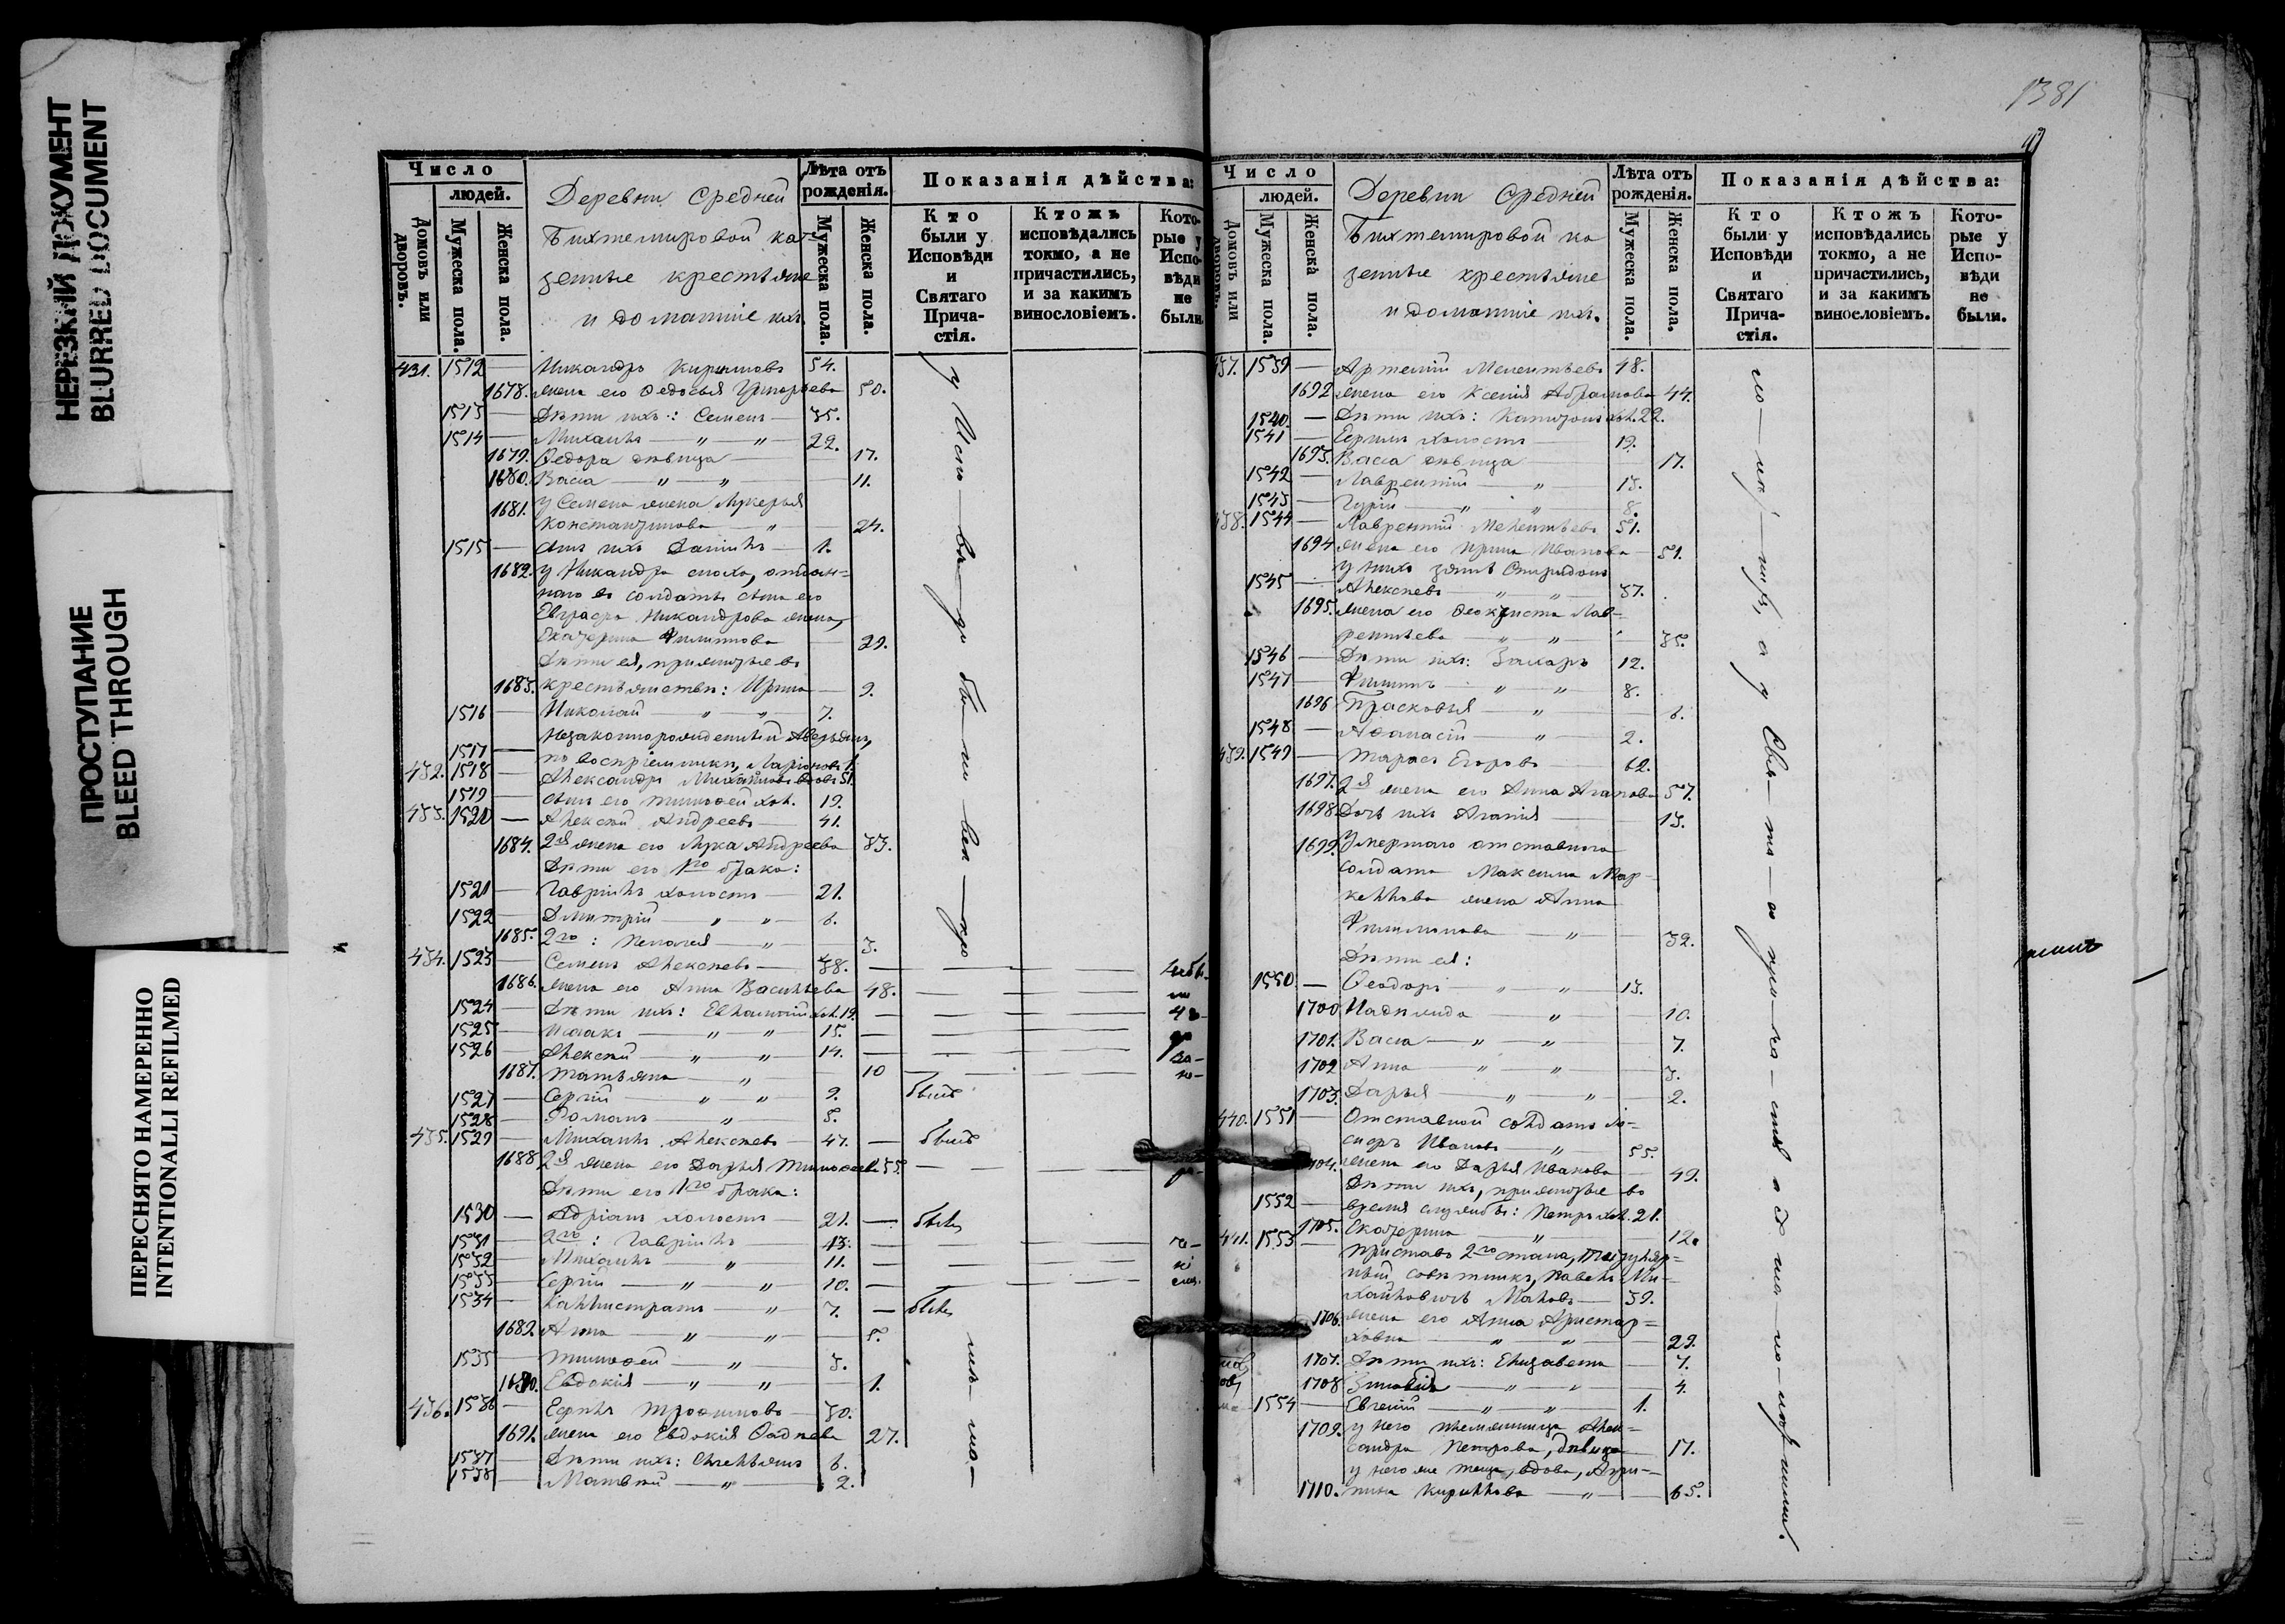 НЕРЕЗКИЙ ДОКУМЕНТ
BLURRED DOCUMENT
ПРОСТУПАНИЕ
BLEED THROUGH
ПЕРЕСНЯТО НАМЕРЕННО
INTENTIONALLI REFILMED
Число
людей.
Домовъ или дворовъ.
Мужеска пола.
Женска пола.
Деревни Средней
Бихтемировой ка-
зенные крестьяне
и домашніе ихъ.
Лѣта отъ рожденія.
Мужеска пола.
Женска пола.
Показанія дѣйства:
Кто были у Исповѣди и Святаго Прича-стія.
Ктожъ исповѣдались токмо, а не причастились, и за какимъ винословіемъ.
Кото-рые у Испо-вѣди не были.
431. 1512 — Никандръ Кириловъ 54.
1678. жена его Ѳедосья Григорьева 50.
1513 — Дѣти ихъ: Семенъ — 35.
1514 — Михаилъ — „ — „ — 22.
1679. Ѳедора дѣвица — 17.
1680. Васса — „ — „ — 11.
1681. у Семена жена Лукерья
Константинова — „ — 24.
1515 — сынъ ихъ Даніилъ — 1.
1682. у Никандра сноха, отдан-
наго въ солдаты сына его
Евграфа Никандрова жена,
Екатерина Филипова 29.
Дѣти ея, прижитые въ
1683. крестьянствѣ: Ирина — 9.
1516 — Николай — „ — „ — 7.
Незаконнорожденный Аверьянъ,
1517 — по воспріемнику, Ларіоновъ 1.
432. 1518 — Александръ Михайловъ вдовъ 51.
1519 — сынъ его Тимоѳей хол. 19.
433. 1520 — Алексѣй Андреевъ — 41.
1684. 2я жена его Лука Андреева 33.
Дѣти его 1го брака:
1521 — Гавріилъ холостъ — 21.
1522 — Дмитрій — „ — „ — 6.
1685. 2го: Пелагея — „ — 3.
434. 1523 — Семенъ Алексѣевъ — 48.
1686. жена его Анна Васильева 48.
1524 — Дѣти ихъ: Евлампій хол. 19.
1525 — Исаакъ — „ — „ — 15.
1526 — Алексѣй — „ — „ — 14.
1687. Татьяна — „ — 10
1527 — Сергій — „ — „ — 9. былъ
1528 — Романъ — „ — 5.
435. 1529 — Михаилъ Алексѣевъ — 47. — былъ
1688 2я жена его Дарья Тимоѳеева 55.
Дѣти его 1го брака:
1530 — Адріанъ холостъ — 21. — былъ
1531 — 2го: Гавріилъ — 13.
1532 — Михаилъ — „ — 11.
1533 — Сергій — „ — „ — 10.
1534 — Каллистратъ — „ — 7. — былъ
1689. Анна — „ — „ — 5.
1535 — Тимоѳей — „ — 3.
1690. Евдокія — „ — „ — 1.
436. 1536 — Ефимъ Трофимовъ — 30.
1691. жена его Евдокія Ѳадѣева 27.
1537 — Дѣти ихъ: Емельянъ 6.
1538 — Матвѣй — „ — 2.
1381
Число
людей.
Домовъ или дворовъ.
Мужеска пола.
Женска пола.
Деревни Средней
Бихтемировой ка
зенные крестьяне
и домашніе ихъ.
Лѣта отъ рожденія.
Мужеска пола.
Женска пола.
Показанія дѣйства:
Кто были у Исповѣди и Святаго Прича-стія.
Ктожъ исповѣдались токмо, а не причастились, и за какимъ винословіемъ.
Кото-рые у Испо-вѣди не были.
437. 1539 — Артемій Мелентьевъ 48.
1692 жена его Ксенія Абрамова 44.
1540. — Дѣти ихъ: Капитонъ хол. 22.
1541 — Ефимъ холостъ — 19.
1693. Васса дѣвица — 17.
1542 — Лаврентій — „ — 13.
1543 — Гурій — „ — „ 8.
438. 1544 — Лаврентій Мелентьевъ 51.
1694 жена его Ирина Иванова — 51.
у нихъ зять Спиридонъ
1545 — Алексѣевъ — „ „ — 37.
1695. жена его Ѳеоктиста Лав-
рентьева — „ „ — 35.
1546 — Дѣти ихъ: Захаръ 12.
1547 — Филиппъ — „ — „ — 8.
1696 Прасковья — „ — 6.
1548 — Аѳанасій — „ — 2.
439. 1549 — Тарасъ Егоровъ — 62.
1697. 2я жена его Анна Агапова 57.
1698 Дочь ихъ Агапія — 13.
1699. Умершаго отставнаго
солдата Максима Мар-
келлова жена Анна
Филимонова — „ — 32.
Дѣти ея:
1550 — Ѳеодоръ — „ „ — 13.
1700 Надежда — „ — 10.
1701. Васса — „ — „ — 7.
1702 Анна — „ — „ — 3.
1703. Дарья — „ — „ — 2.
440. 1551 — Отставной солдатъ
Ивановъ — „ — 55.
1704. жена его Дарья Иванова 49.
Дѣти ихъ, прижитые во
1552 — время службы: Петръ хол. 21.
1705. Екатерина — „ — 12.
441. 1553 — Приставъ 2го стана, Титуляр-
ный совѣтникъ, Павелъ Ми-
хайловичъ Маловъ — 39.
1706. жена его Анна Аристар-
ховна — „ — „ — 29.
1707. Дѣти ихъ: Елизавета — 7.
1708 Зиновія — „ — „ — 4.
1554 — Евгеній — „ — „ — 1.
1709. у него племянница Алек-
сандра Петрова, дѣвица 17.
у него же теща, вдова, Агри-
1710. пина Кириллова — „ — 65.